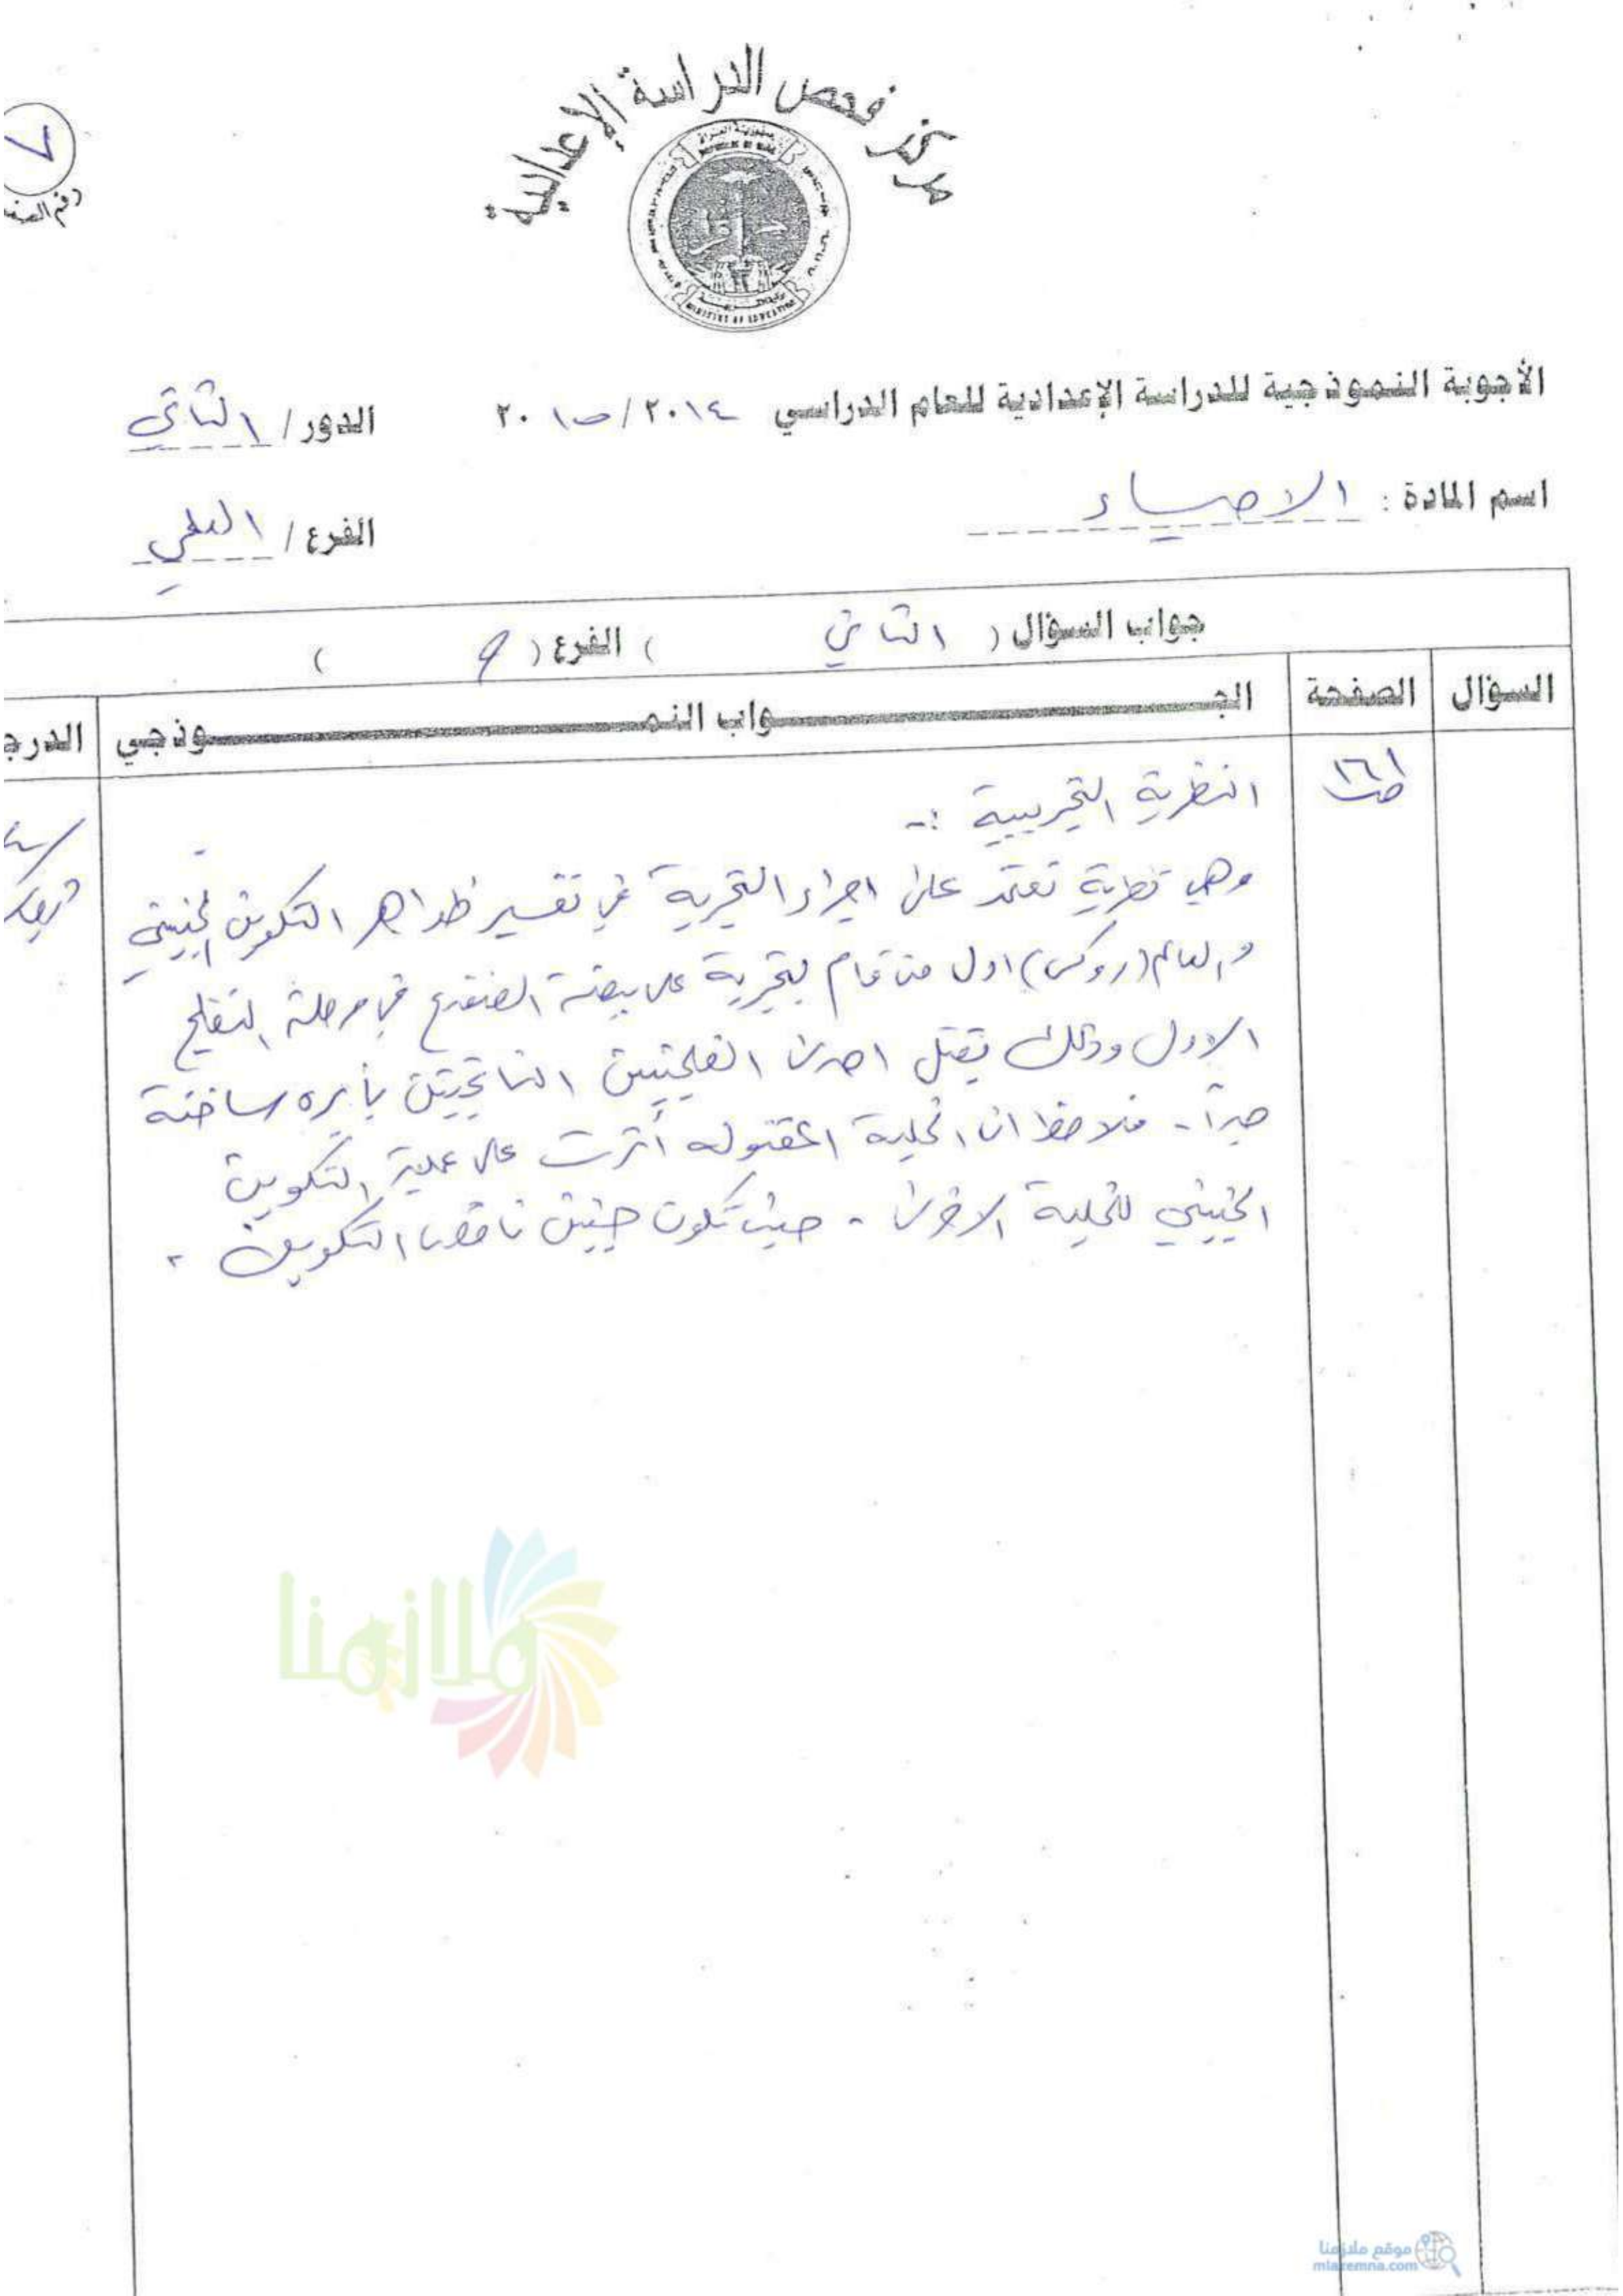 مركز فحص الدراسة الإعدادية
جمهورية العراق
REPUBLIC OF IRAQ
MINISTRY OF EDUCATION
٧
رقم الصف
الأجوبة النموذجية للدراسة الإعدادية للعام الدراسي ٢٠١٤/٢٠١٥ الدور/ الثاني
اسم المادة : الاحياء الفرع/ العلمي
جواب السؤال ( الثاني ) الفرع ( )
السؤال الصفحة الجـــواب النمـــوذجي الدرج
ص١٦١
النظرية التجريبية :-
وهي نظرية تعتمد على اجراء التجربة في تفسير ظواهر التكوين الجنيني
والعالم (روكس) اول من قام بتجربة على بيضة الضفدع في مرحلة التفلج
الاول وذلك بقتل احدى الفلجتين الناتجتين بأبره ساخنة
جداً - فلاحظ ان الخلية المقتوله أثرت على عملية التكوين
الجنيني للخلية الاخرى - حيث تكون جنين ناقص التكوين .
ملازمنا
موقع ملازمنا
mlazemna.com